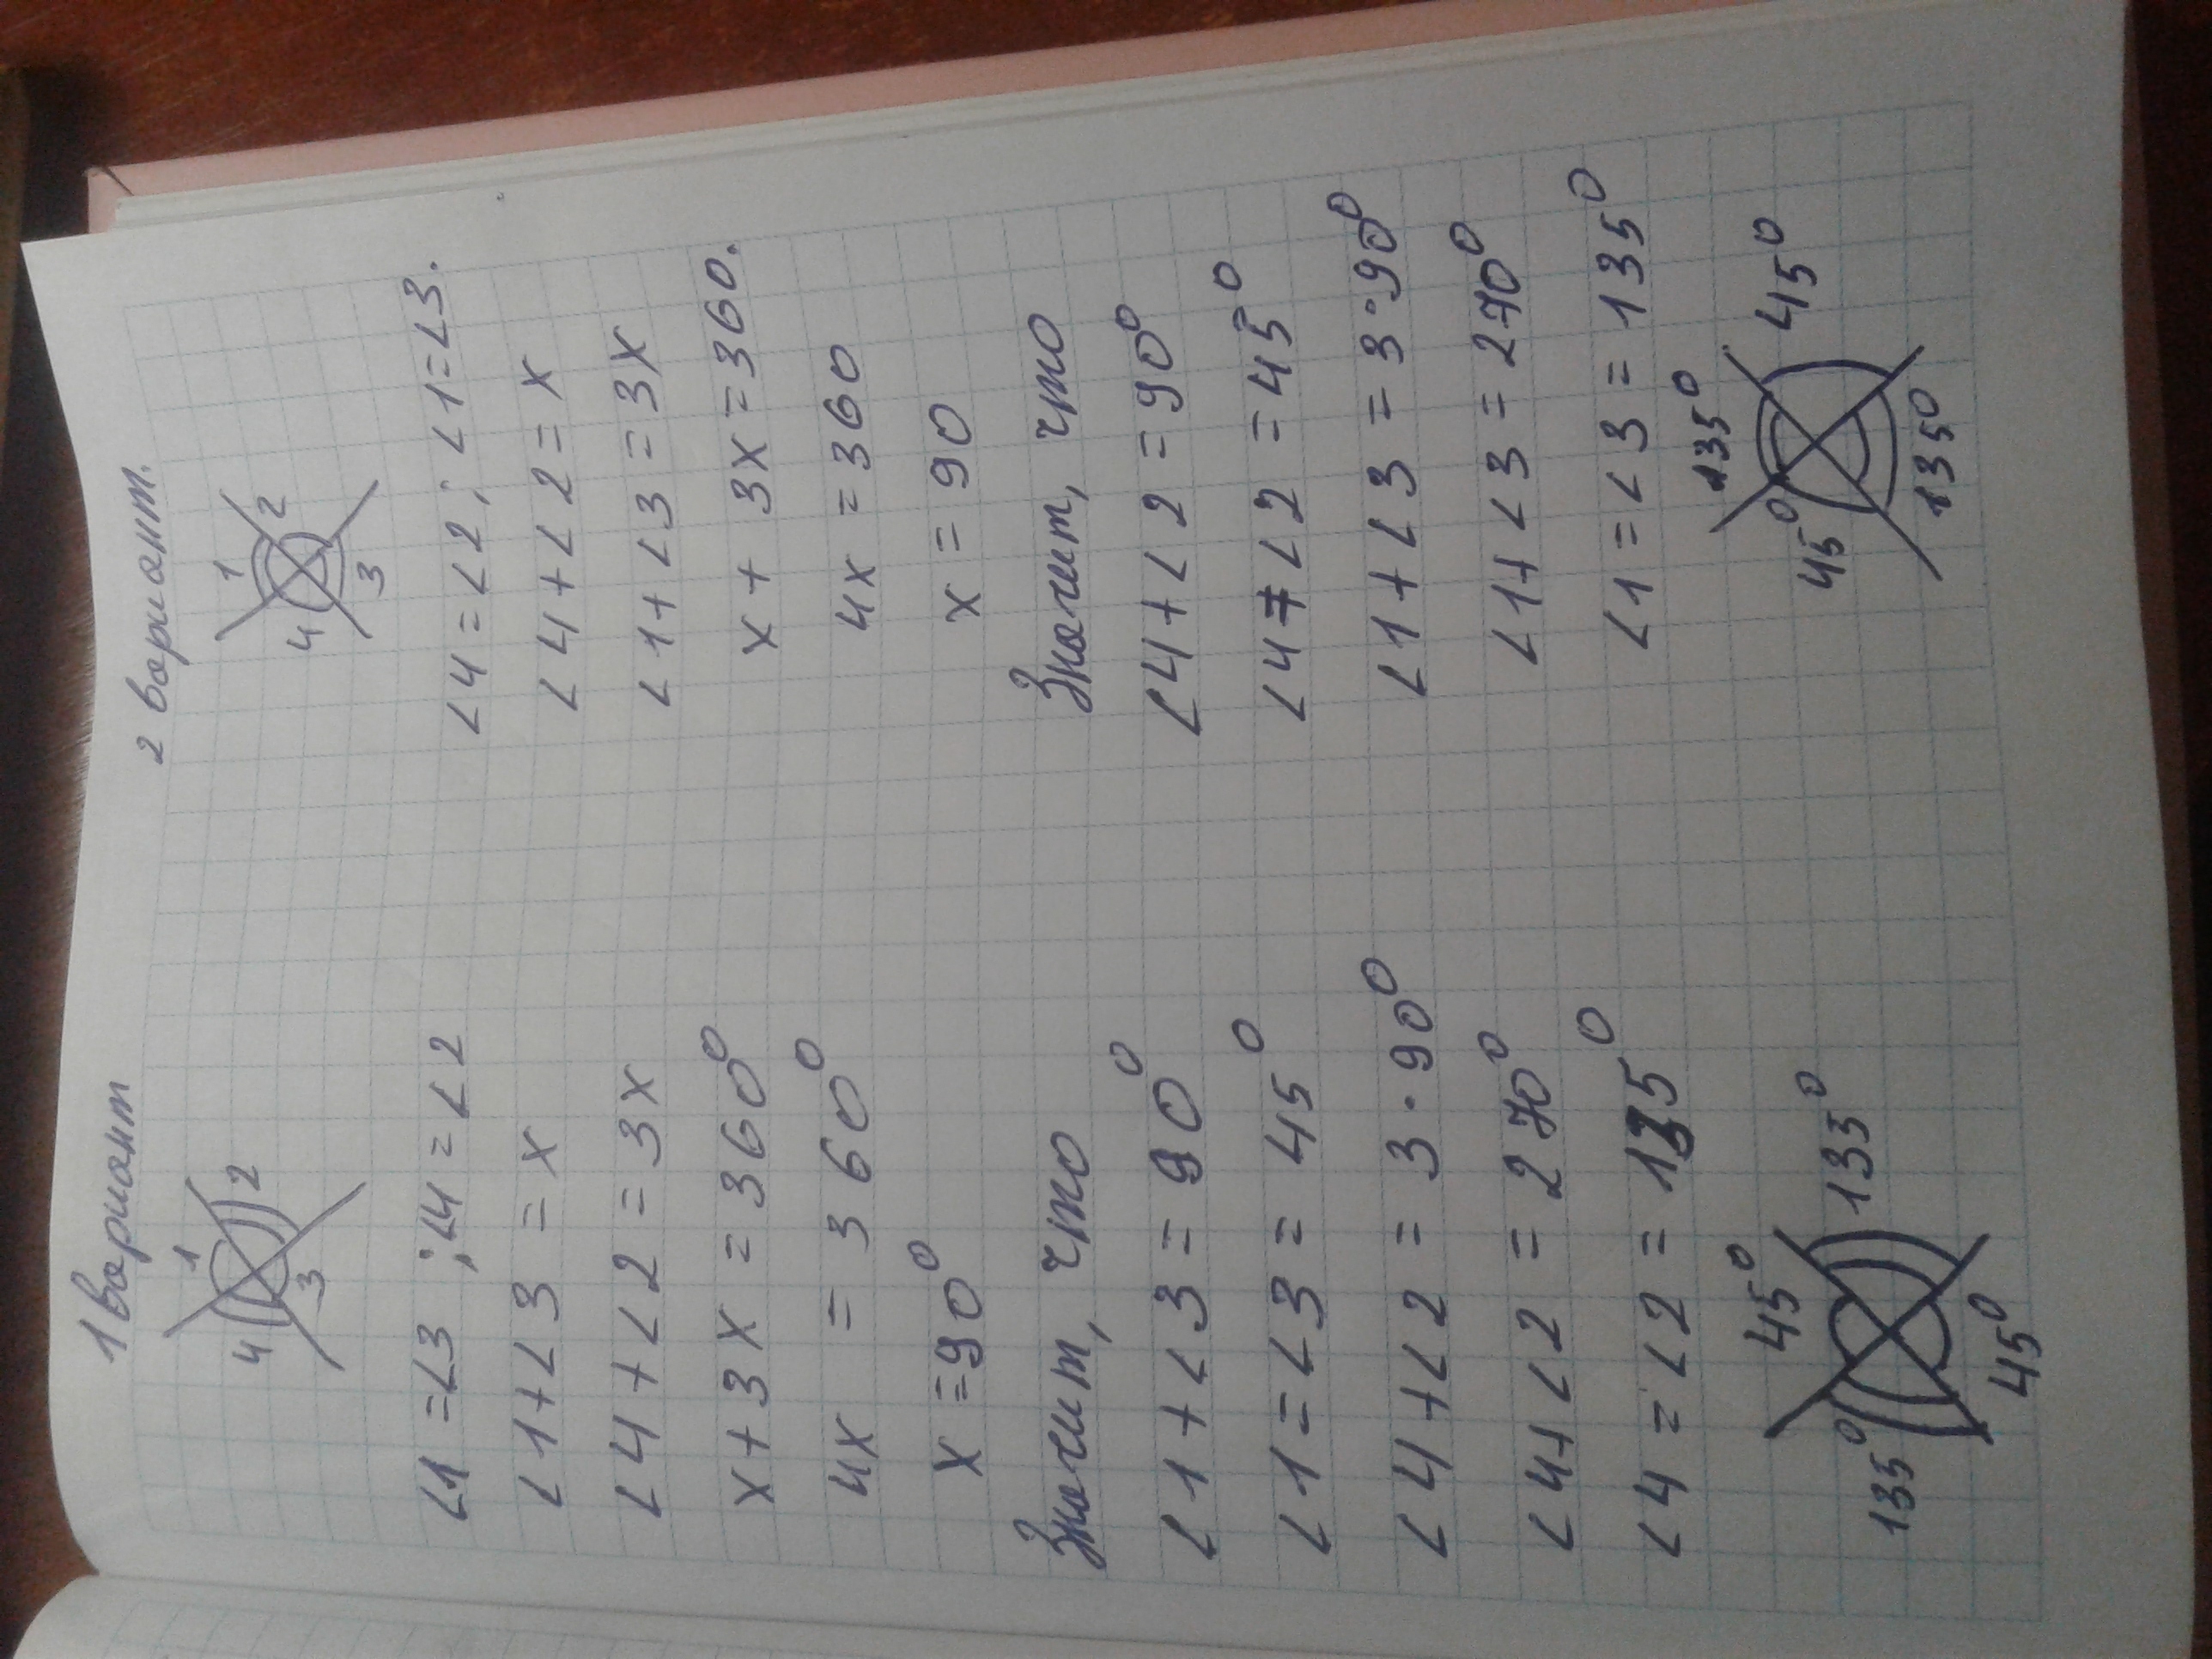 1 вариант
1
4
2
3
∠1 = ∠3 ; ∠4 = ∠2
∠1 + ∠3 = x
∠4 + ∠2 = 3x
x + 3x = 360⁰
4x = 360⁰
x = 90⁰
Значит, что
∠1 + ∠3 = 90⁰
∠1 = ∠3 = 45⁰
∠4 + ∠2 = 3 · 90⁰
∠4 + ∠2 = 270⁰
∠4 = ∠2 = 135⁰
45⁰
135⁰
135⁰
45⁰
2 вариант.
1
4
2
3
∠4 = ∠2 ; ∠1 = ∠3.
∠4 + ∠2 = x
∠1 + ∠3 = 3x
x + 3x = 360.
4x = 360
x = 90
Значит, что
∠4 + ∠2 = 90⁰
∠4 = ∠2 = 45⁰
∠1 + ∠3 = 3 · 90⁰
∠1 + ∠3 = 270⁰
∠1 = ∠3 = 135⁰
135⁰
45⁰
45⁰
135⁰